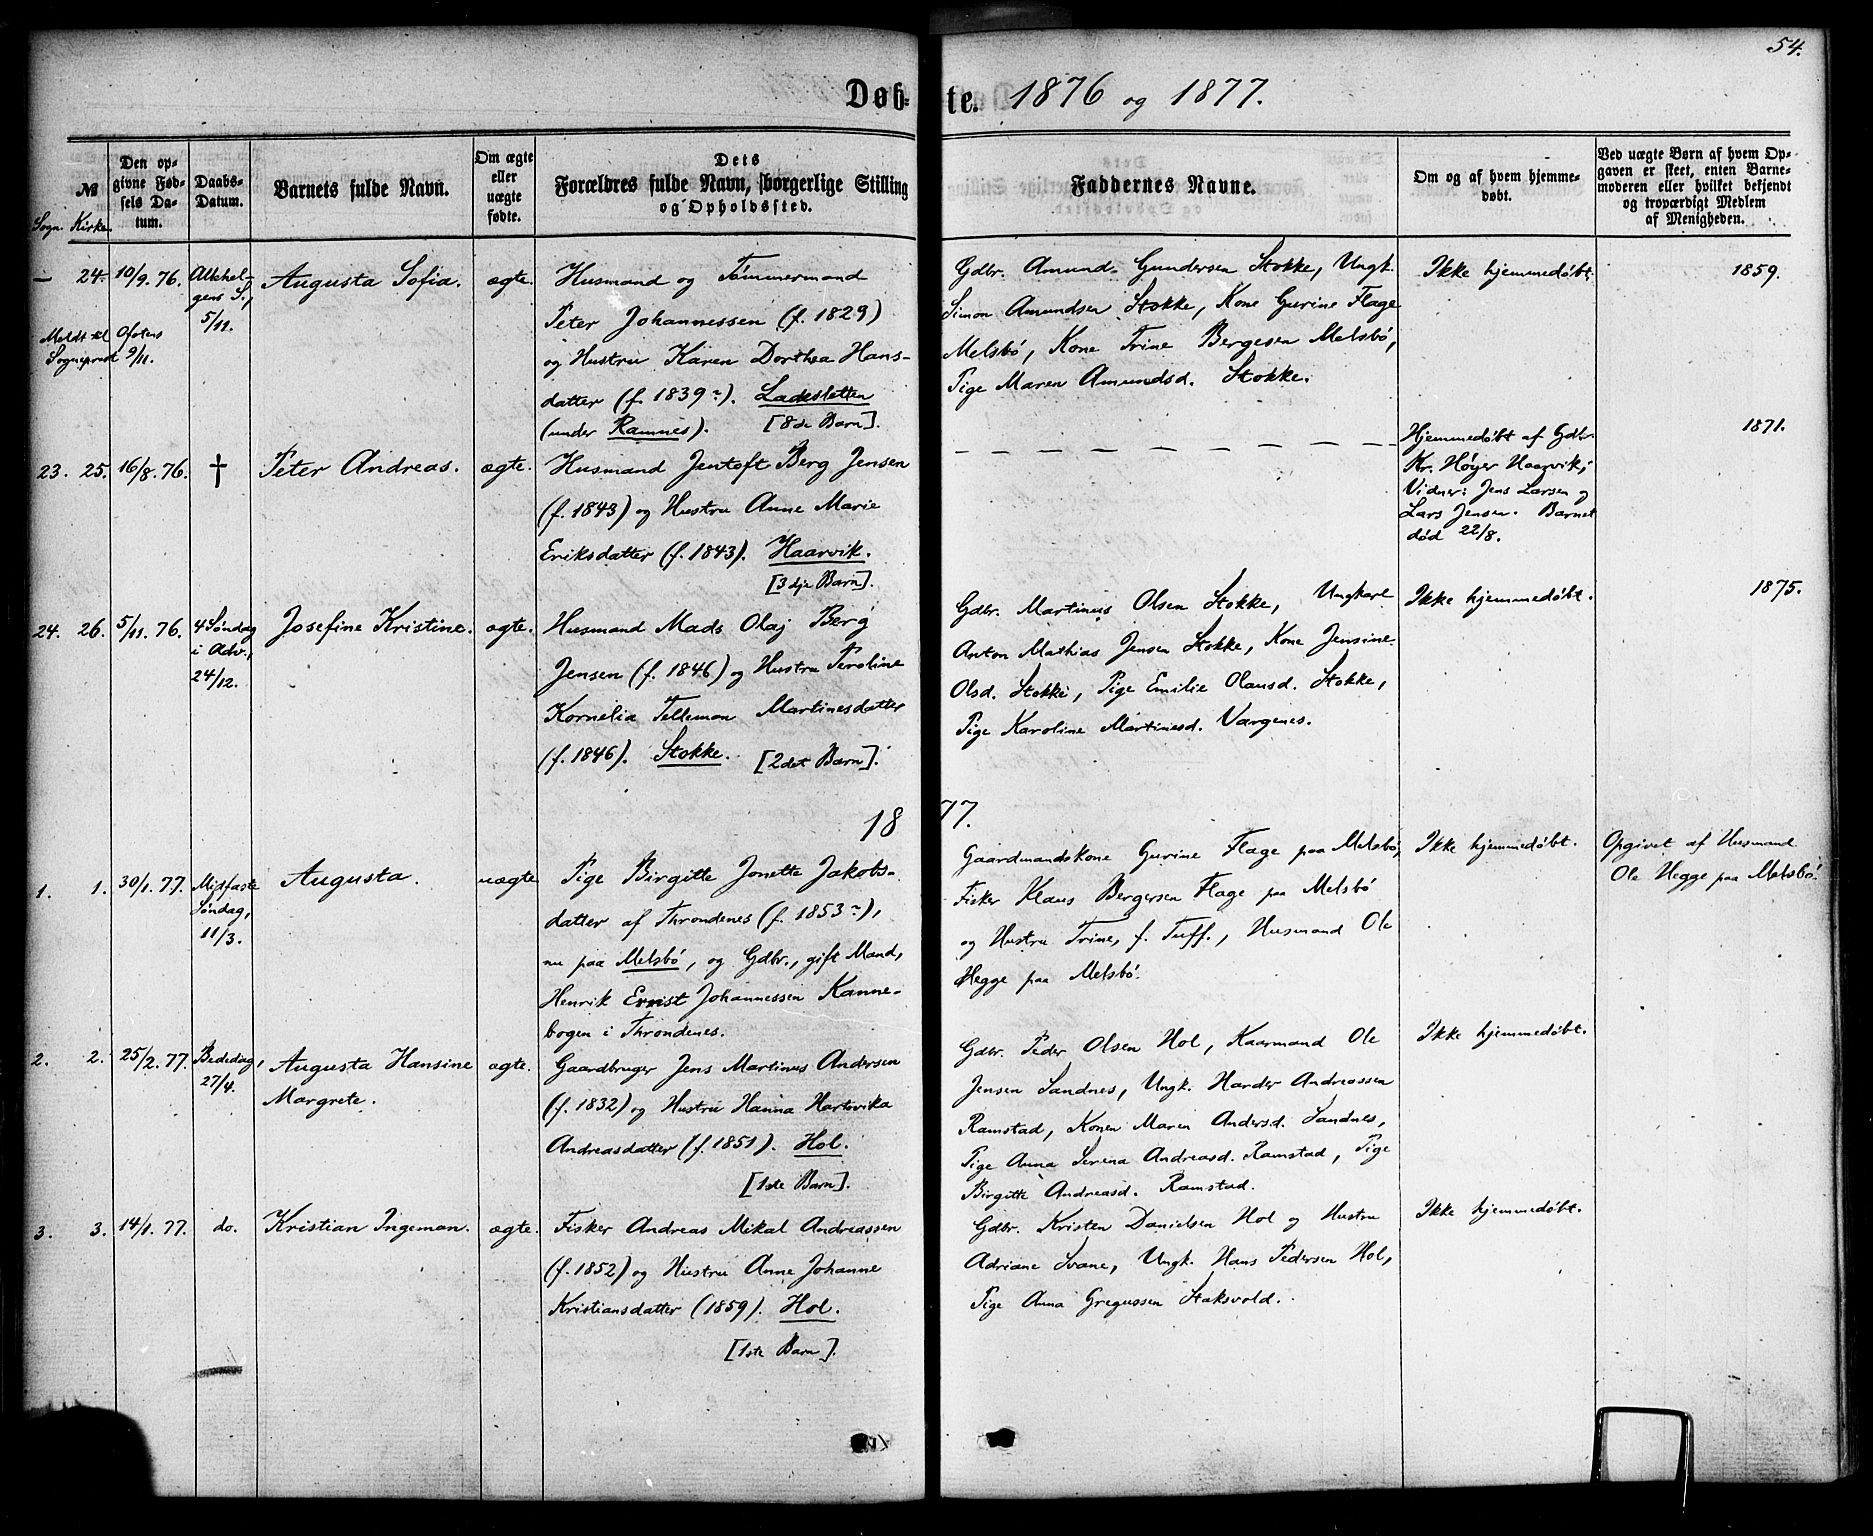 54.
Døbte. 1876 og 1877.
№
Sogn. Kirke.
Den opgivne Fødsels Datum.
Daabs-Datum.
Barnets fulde Navn.
Om ægte eller uægte fødte.
Dets Forældres fulde Navn, borgerlige Stilling og Opholdssted.
Faddernes Navne.
Om og af hvem hjemmedøbt.
Ved uægte Børn af hvem Opgaven er skeet, enten Barnemoderen eller hvilket bekjendt og troværdigt Medlem af Menigheden.
— 24. 10/9. 76.
Allehelgens S.,
5/11.
Meldt til Ofotens
Sogneprest 9/11.
Augusta Sofia.
ægte.
Husmand og Tømmermand
Peter Johannessen (f. 1829)
og Hustru Karen Dorthea Hans-
datter (f. 1839~). Ladesletten
(under Ramnes). [8de Barn].
Gdbr. Amund Gundersen Stokke, Ungk.
Simon Amundsen Stokke, Kone Gurine Flage
Melsbö, Kone Trine Bergesen Melsbö,
Pige Maren Amundsd. Stokke.
Ikke hjemmedøbt.
1859.
23. 25. 16/8. 76.
†
Peter Andreas.
ægte.
Husmand Jentoft Berg Jensen
(f. 1843) og Hustru Anne Marie
Eriksdatter (f. 1843). Haarvik.
[3dje Barn].
— — — — — — — — — —
Hjemmedøbt af Gdbr.
Kr. Høyer Haarvik;
Vidner: Jens Larsen og
Lars Jensen. Barnet
død 22/8.
1871.
24. 26. 5/11. 76.
4 Søndag
i Adv.,
24/12.
Josefine Kristine.
ægte.
Husmand Mads Olaj Berg
Jensen (f. 1846) og Hustru Peroline
Kornelia Telleman Martinesdatter
(f. 1846). Stokke. [2det Barn].
Gdbr. Martinus Olsen Stokke, Ungkarl
Anton Mathias Jensen Stokke, Kone Jensine
Olsd. Stokke, Pige Emilie Olausd. Stokke,
Pige Karoline Martinesd. Vargenes.
Ikke hjemmedøbt.
1875.
1877.
1. 1. 30/1. 77.
Midfaste
Søndag,
11/3.
Augusta.
uægte
Pige Birgitte Jonette Jakobs-
datter af Throndenes (f. 1853~),
nu paa Melsbö, og Gdbr., gift Mand,
Henrik Ernst Johannessen Kanne-
bogen i Throndenes.
Gaardmandskone Gurine Flage paa Melsbö,
Fisker Klaus Bergersen Flage paa Melsbö
og Hustru Trine, f. Tuff., Husmand Ole
Hegge paa Melsbö.
Ikke hjemmedøbt.
Opgivet af Husmand
Ole Hegge paa Melsbö.
2. 2. 25/2. 77.
Bededag,
27/4.
Augusta Hansine
Margrete.
ægte.
Gaardbruger Jens Martinus Andersen
(f. 1832) og Hustru Hanna Hartvika
Andreasdatter (f. 1851). Hol.
[1ste Barn].
Gdbr. Peder Olsen Hol, Kaarmand Ole
Jensen Sandnes, Ungk. Harder Andreassen
Ramstad, Konen Maren Andersd. Sandnes,
Pige Anna Serina Andreasd. Ramstad, Pige
Birgitte Andreasd. Ramstad.
Ikke hjemmedøbt.
3. 3. 14/1. 77.
do.
Kristian Ingeman.
ægte.
Fisker Andreas Mikal Andreassen
(f. 1852) og Hustru Anne Johanne
Kristiansdatter (1859). Hol.
[1ste Barn].
Gdbr. Kristen Danielsen Hol og Hustru
Adriane Svane, Ungk. Hans Pedersen Hol,
Pige Anna Gregussen Staksvold.
Ikke hjemmedøbt.